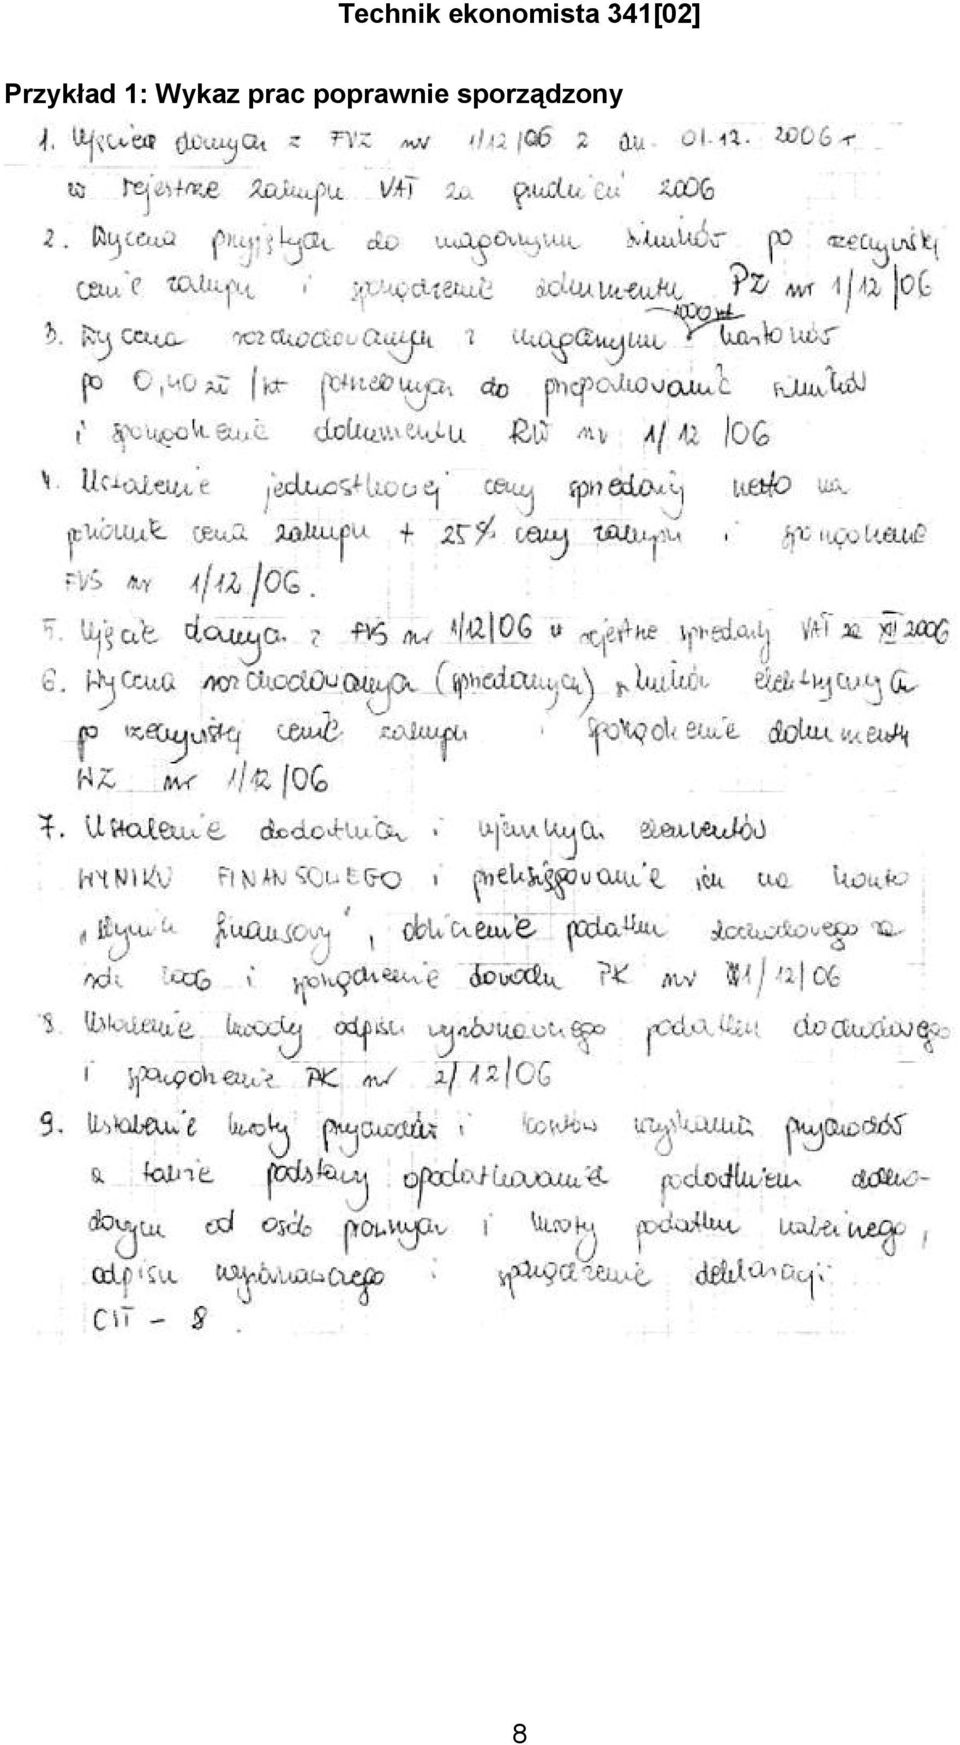 Technik ekonomista 341[02]
Przykład 1: Wykaz prac poprawnie sporządzony
1. Ujęcie danych z FVZ nr 1/12/06 z dn. 01.12.2006 r
w rejestrze zakupu VAT za grudzień 2006
2. Wycena przyjętych do magazynu silników po rzeczywistej
cenie zakupu i sporządzenie dokumentu PZ nr 1/12/06
3. Wycena rozchodowanych z magazynu 1000 szt kartonów
po 0,40 zł/szt potrzebnych do przepakowania silników
i sporządzenie dokumentu RW nr 1/12/06
4. Ustalenie jednostkowej ceny sprzedaży netto na
poziomie cena zakupu + 25% ceny zakupu i sporządzenie
FVS nr 1/12/06.
5. Ujęcie danych z FVS nr 1/12/06 w rejestrze sprzedaży VAT za XII 2006
6. Wycena rozchodowanych (sprzedanych) silników elektrycznych
po rzeczywistej cenie zakupu i sporządzenie dokumentu
WZ nr 1/12/06
7. Ustalenie dodatnich i ujemnych elementów
WYNIKU FINANSOWEGO i przeksięgowanie ich na konto
„Wynik finansowy", obliczenie podatku dochodowego za
rok 2006 i sporządzenie dowodu PK nr 1/12/06
8. Ustalenie kwoty odpisu wyrównawczego podatku dochodowego
i sporządzenie PK nr 2/12/06
9. Ustalenie kwoty przychodów i kosztów uzyskania przychodów
a także podstawy opodatkowania podatkiem docho-
dowym od osób prawnych i kwoty podatku należnego,
odpisu wyrównawczego i sporządzenie deklaracji
CIT - 8.
8